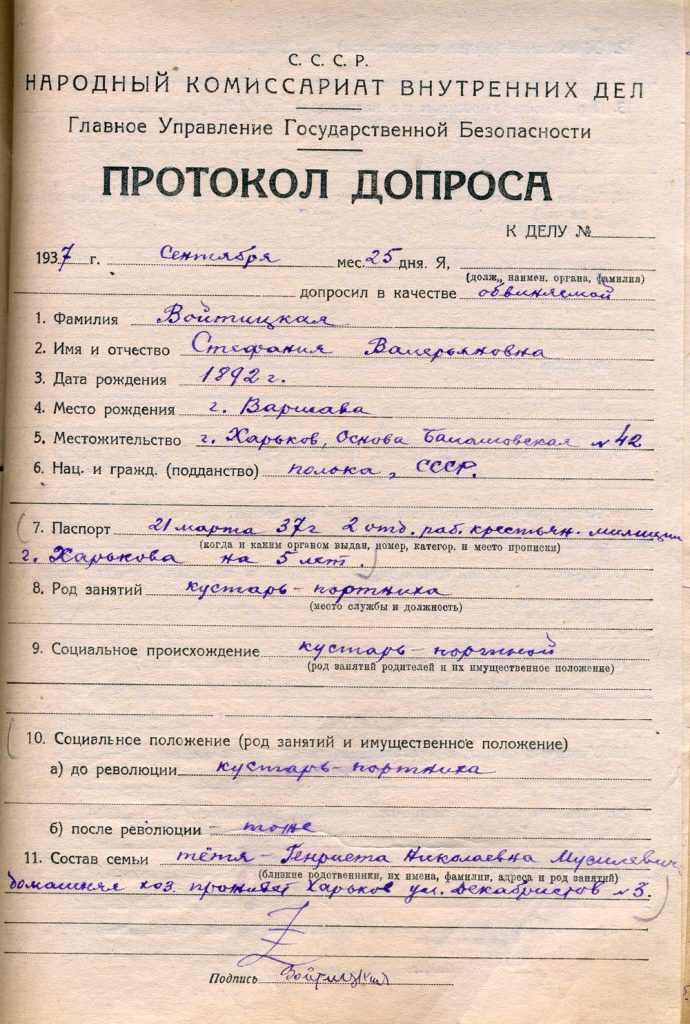 С. С. С. Р.
НАРОДНЫЙ КОМИССАРИАТ ВНУТРЕННИХ ДЕЛ
Главное Управление Государственной Безопасности
ПРОТОКОЛ ДОПРОСА
К ДЕЛУ №
1937 г. Сентября мес. 25 дня. Я,
(долж., наимен. органа, фамилия)
допросил в качестве обвиняемой
1. Фамилия Войтицкая
2. Имя и отчество Стефания Валерьяновна
3. Дата рождения 1892 г.
4. Место рождения г. Варшава
5. Местожительство г. Харьков, Основа Балашовская № 42
6. Нац. и гражд. (подданство) полька, СССР.
7. Паспорт 21 марта 37 г 2 отд. раб. крестьян. милиции
(когда и каким органом выдан, номер, категор. и место прописки)
г. Харькова на 5 лет.
8. Род занятий кустарь-портниха
(место службы и должность)
9. Социальное происхождение кустарь-портной
(род занятий родителей и их имущественное положение)
10. Социальное положение (род занятий и имущественное положение)
а) до революции кустарь-портниха
б) после революции - тоже
11. Состав семьи тётя - Генриета Николаевна
(близкие родственники, их имена, фамилии, адреса и род занятий)
домашняя хоз. Харьков ул. Декабристов № 3.
Подпись